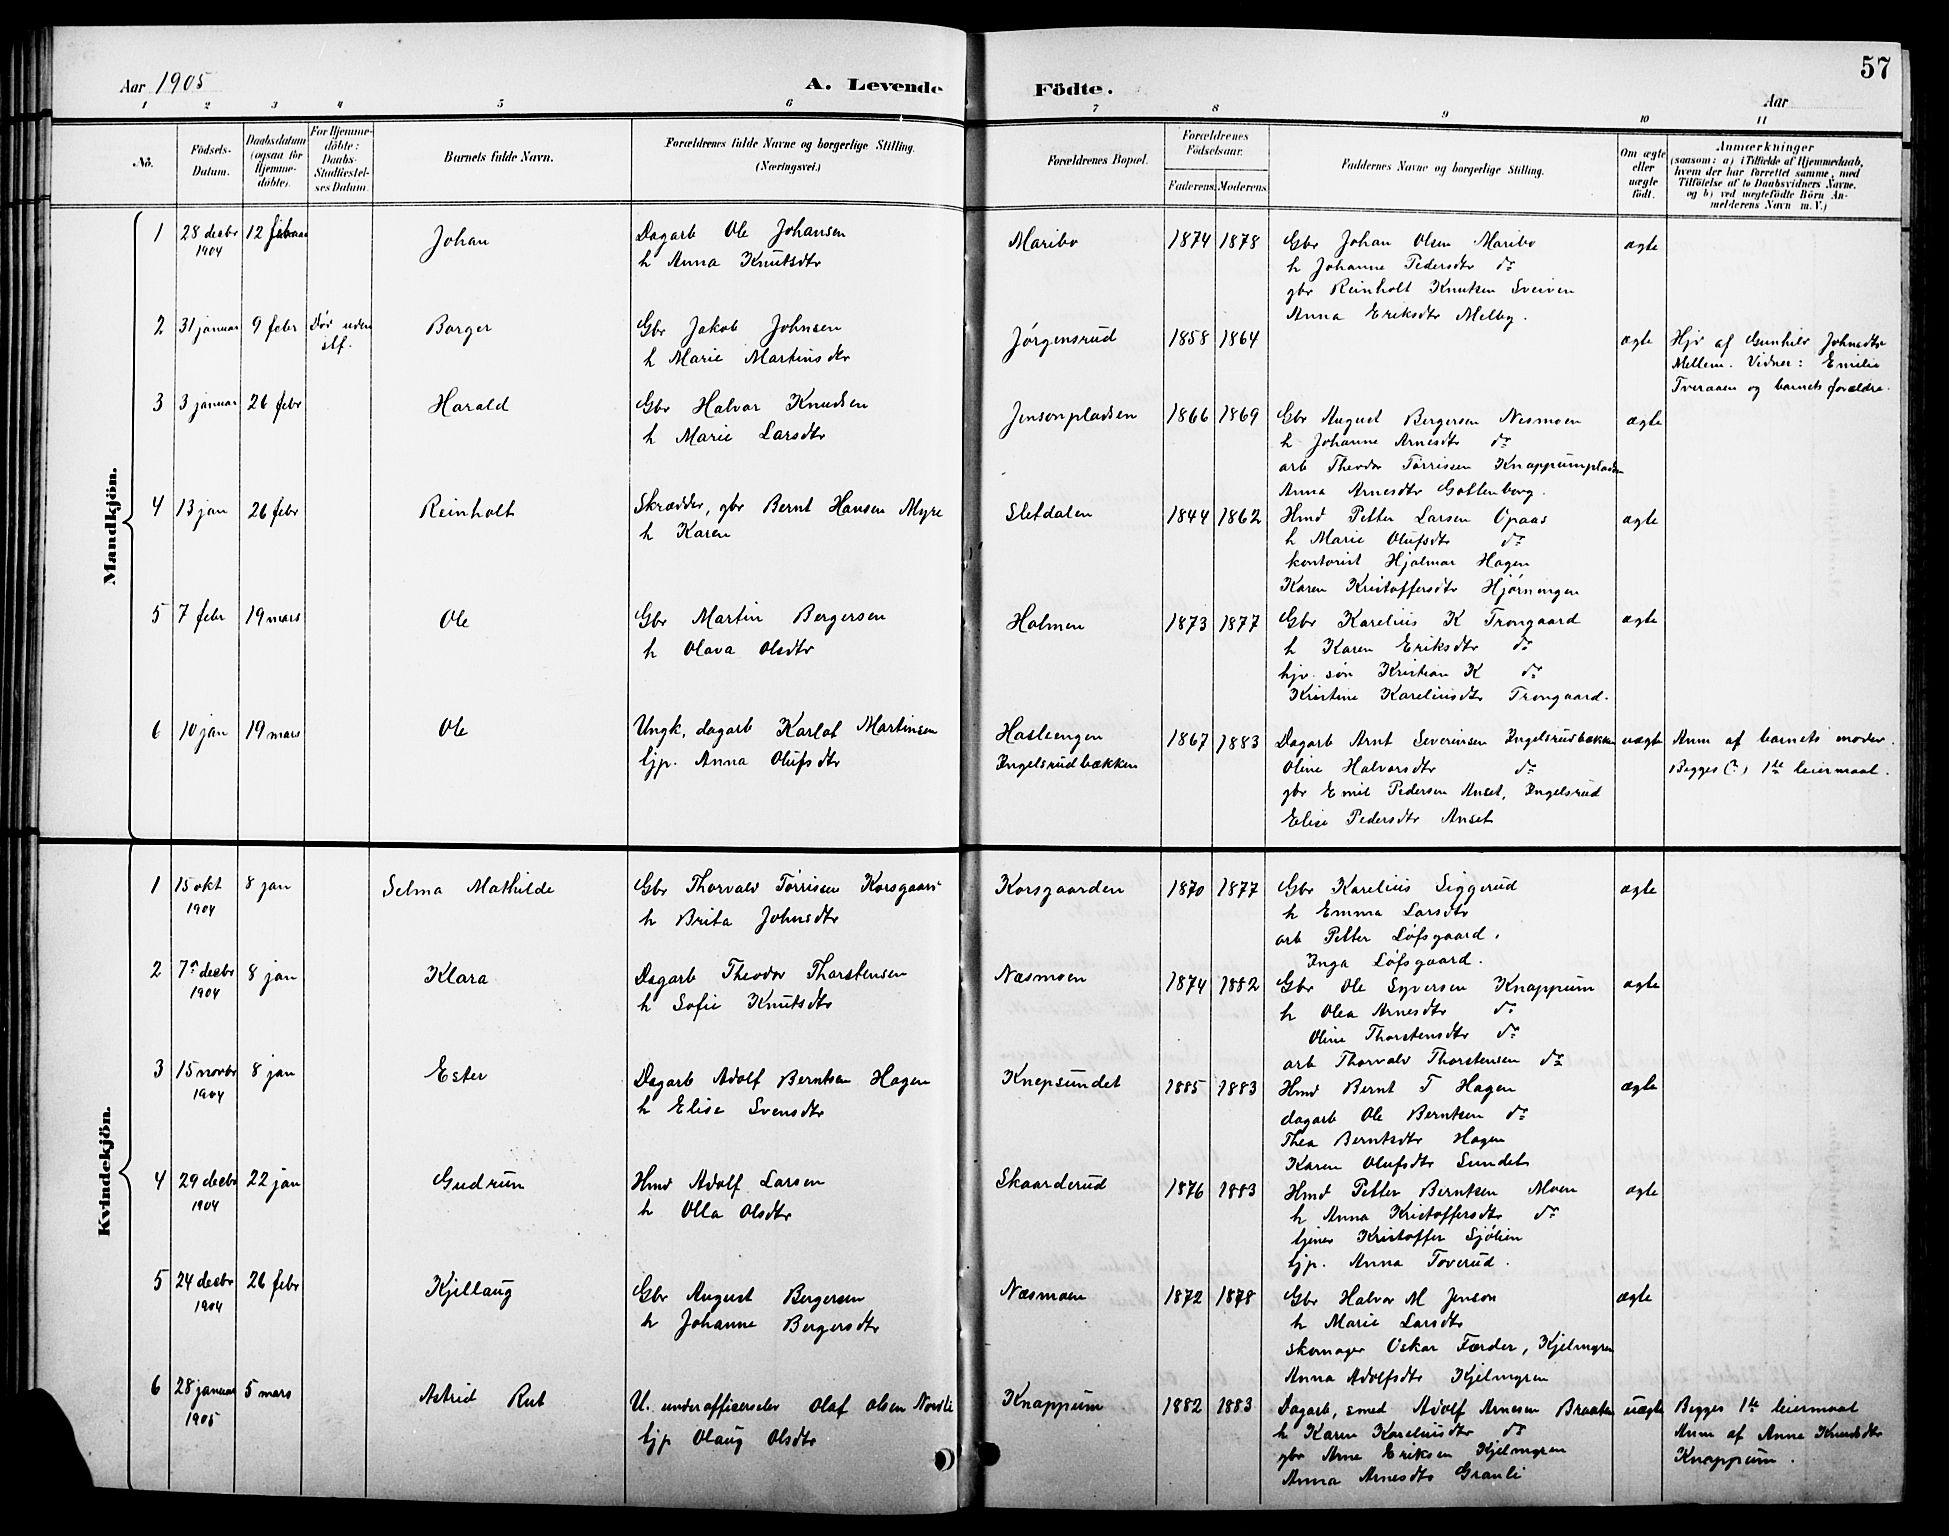 57
Aar 1905
A. Levende Födte.
Aar
1 2 3 4 5 6 7 8 9 10 11
No.
Födsels-Datum.
Daabsdatum (ogsaa for Hjemme-döbte).
For Hjemme-döbte: Daabs-Stadfæstelses Datum.
Barnets fulde Navn.
Forældrenes fulde Navne og borgerlige Stilling. (Næringsvei.)
Forældrenes Bopæl.
Forældrenes Födselsaar.
Faderens. Moderens.
Faddernes Navne og borgerlige Stilling.
Om ægte eller uægte födt.
Anmærkninger
(saasom: a) i Tilfælde af Hjemmedaab, hvem der har forrettet samme, med Tilföielse af to Daabsvidners Navne, og b) ved uægtefödte Börn Anmelderens Navn m. V.)
Mandkjön.
1 28 decbr 12 februar Johan Dagarb Ole Johansen Maribo 1874 1878 Gbr Johan Olsen Maribo ægte
1904 h Anna Knutsdtr h Johanne Pedersdtr do
gbr Reinholt Knutsen Sveiven
Anna Eriksdtr Melby.
2 31 januar 9 febr Dör uden stf. Borger Gbr Jakob Johnsen Jørgensrud 1858 1864 ægte Hjv af Gunhild Johnsdtr
h Marie Martinsdtr Mellem. Vidner: Emilie
Tveraaen og barnets forældre.
3 3 januar 26 febr Harald Gbr Halvor Knudsen Jensonpladsen 1866 1869 Gbr August Bergersen Nesmoen ægte
h Marie Larsdtr h Johanne Arnesdtr do
arb Theodor Tørrissen Knappumpladsen
Anna Arnesdtr Gottenborg.
4 13 jan 26 febr Reinholt Skrædder, gbr Bernt Hansen Myre Sletdalen 1844 1862 Hmd Petter Larsen Opaas ægte
h Karen h Marie Olufsdtr do
kontorist Hjalmar Hagen
Karen Kristoffersdtr Hjørningen
5 7 febr 19 mars Ole Gbr Martin Bergersen Holmen 1873 1877 Gbr Karelius K Trongaard ægte
h Olava Olsdtr h Karen Eriksdtr do
hjv. søn Kristian K do
Kristine Kareliusdtr Trongaard.
6 10 jan 19 mars Ole Ungk, dagarb Karlot Martinsen Hasleengen 1867 1883 Dagarb Arnt Severinsen Ingelsrudbækken uægte Anm af barnets moder.
tjp. Anna Olufsdtr Ingelsrudbækken Oline Halvorsdtr do Begges (?) 1ste leiermaal.
gbr Emil Pedersen Anset, Ingelsrud
Elise Pedersdtr Anset
Kvindekjön.
1 15 okt 8 jan Selma Mathilde Gbr Thorvald Tørrissen Korsgaard Korsgaarden 1870 1877 Gbr Karelius Siggerud ægte
1904 h Brita Johnsdtr h Emma Larsdtr
arb Petter Løfsgaard.
Inga Løfsgaard.
2 7de decbr 8 jan Klara Dagarb Theodor Thorstensen Næsmoen 1874 1882 Gbr Ole Syversen Knappum ægte
1904 h Sofie Knutsdtr h Olea Arnesdtr do
Oline Thorstensdtr do
arb Thorvald Thorstensen do
3 15 novbr 8 jan Ester Dagarb Adolf Berntsen Hagen Knepsundet 1885 1883 Hmd Bernt T Hagen ægte
1904 h Elise Svensdtr dagarb Ole Berntsen do
Thea Berntsdtr Hagen
Karen Olufsdtr Sundet
4 29 decbr 22 jan Gudrun Hmd Adolf Larsen Skaarderud 1876 1883 Hmd Petter Berntsen Moen ægte
1904 h Olla Olsdtr h Anna Kristoffersdtr do
tjener Kristoffer Sjølien
tjp. Anna Toverud.
5 24 decbr 26 febr Kjellaug Gbr August Bergersen Næsmoen 1872 1878 Gbr Halvor M Jenson ægte
1904 h Johanne Bergersdtr h Marie Larsdtr
skomager Oskar Førder, Kjelmyren
Anna Adolfsdtr Kjelmyren
6 28 januar 5 mars Astrid Rut U. underofficerselev Olaf Olsen Nordli Knappum 1882 1883 Dagarb, smed Adolf Arnesen Braaten uægte Begges 1ste leiermaal
1905 tjp Olaug Olsdtr h Karen Kareliusdtr do Anm af Anne Knudsdtr
gbr Arne Eriksen Kjelmyren Knappum.
Anna Arnesdtr Granli